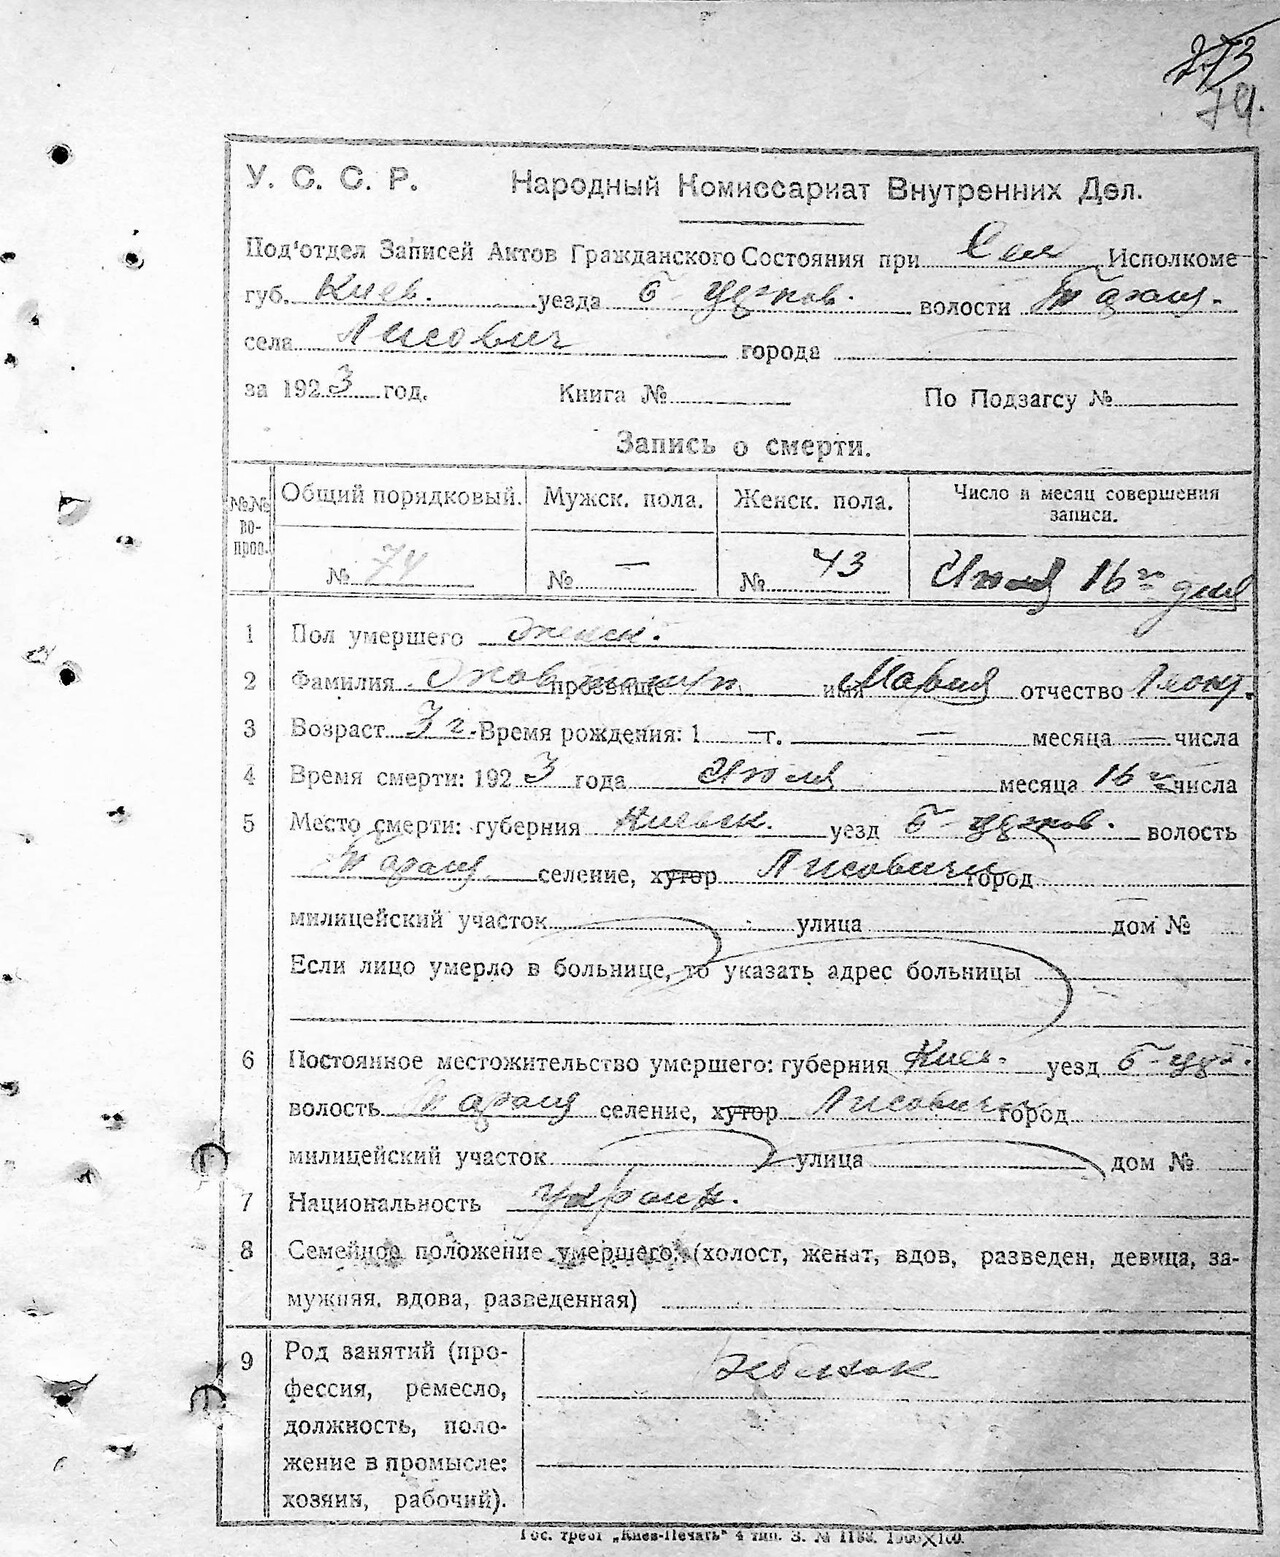 273
74.
У. С. С. Р. Народный Комиссариат Внутренних Дел.
Под'отдел Записей Актов Гражданского Состояния при Сел Исполкоме
губ. Киев. уезда Б-Церков. волости Таращ.
села Лисович города
за 1923 год. Книга № По Подзагсу №
Запись о смерти.
№№ во-прос. Общий порядковый. Мужск. пола. Женск. пола. Число и месяц совершения записи.
№ 74 № — № 43 Июля 16го дня
1 Пол умершего Женск.
2 Фамилия прозвище имя Мария отчество Леонт.
3 Возраст 3 г. Время рождения: 1 — г. — месяца — числа
4 Время смерти: 1923 года Июля месяца 16го числа
5 Место смерти: губерния Киевск. уезд Б-Церков. волость
Таращ. селение, хутор Лисовичи город
милицейский участок улица дом №
Если лицо умерло в больнице, то указать адрес больницы
6 Постоянное местожительство умершего: губерния Киев. уезд Б-Цер.
волость Таращ селение, хутор Лисовичи город
милицейский участок улица дом №
7 Национальность Украин.
8 Семейное положение умершего: (холост, женат, вдов, разведен, девица, за-
мужняя, вдова, разведенная)
9 Род занятий (про-
фессия, ремесло,
должность, поло-
жение в промысле:
хозяин, рабочий).
Гос. трест „Киев-Печать“ 4 тип. З. № 1188. 1000×100.